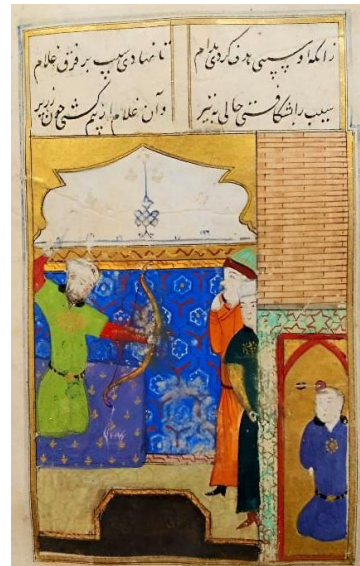 زانکه او سیبی هدف کردی مدام تا نهادی سیب بر فرق غلام
سیب را بشکافتی حالی به تیر وآن غلام از بیم گشتی چون زریر